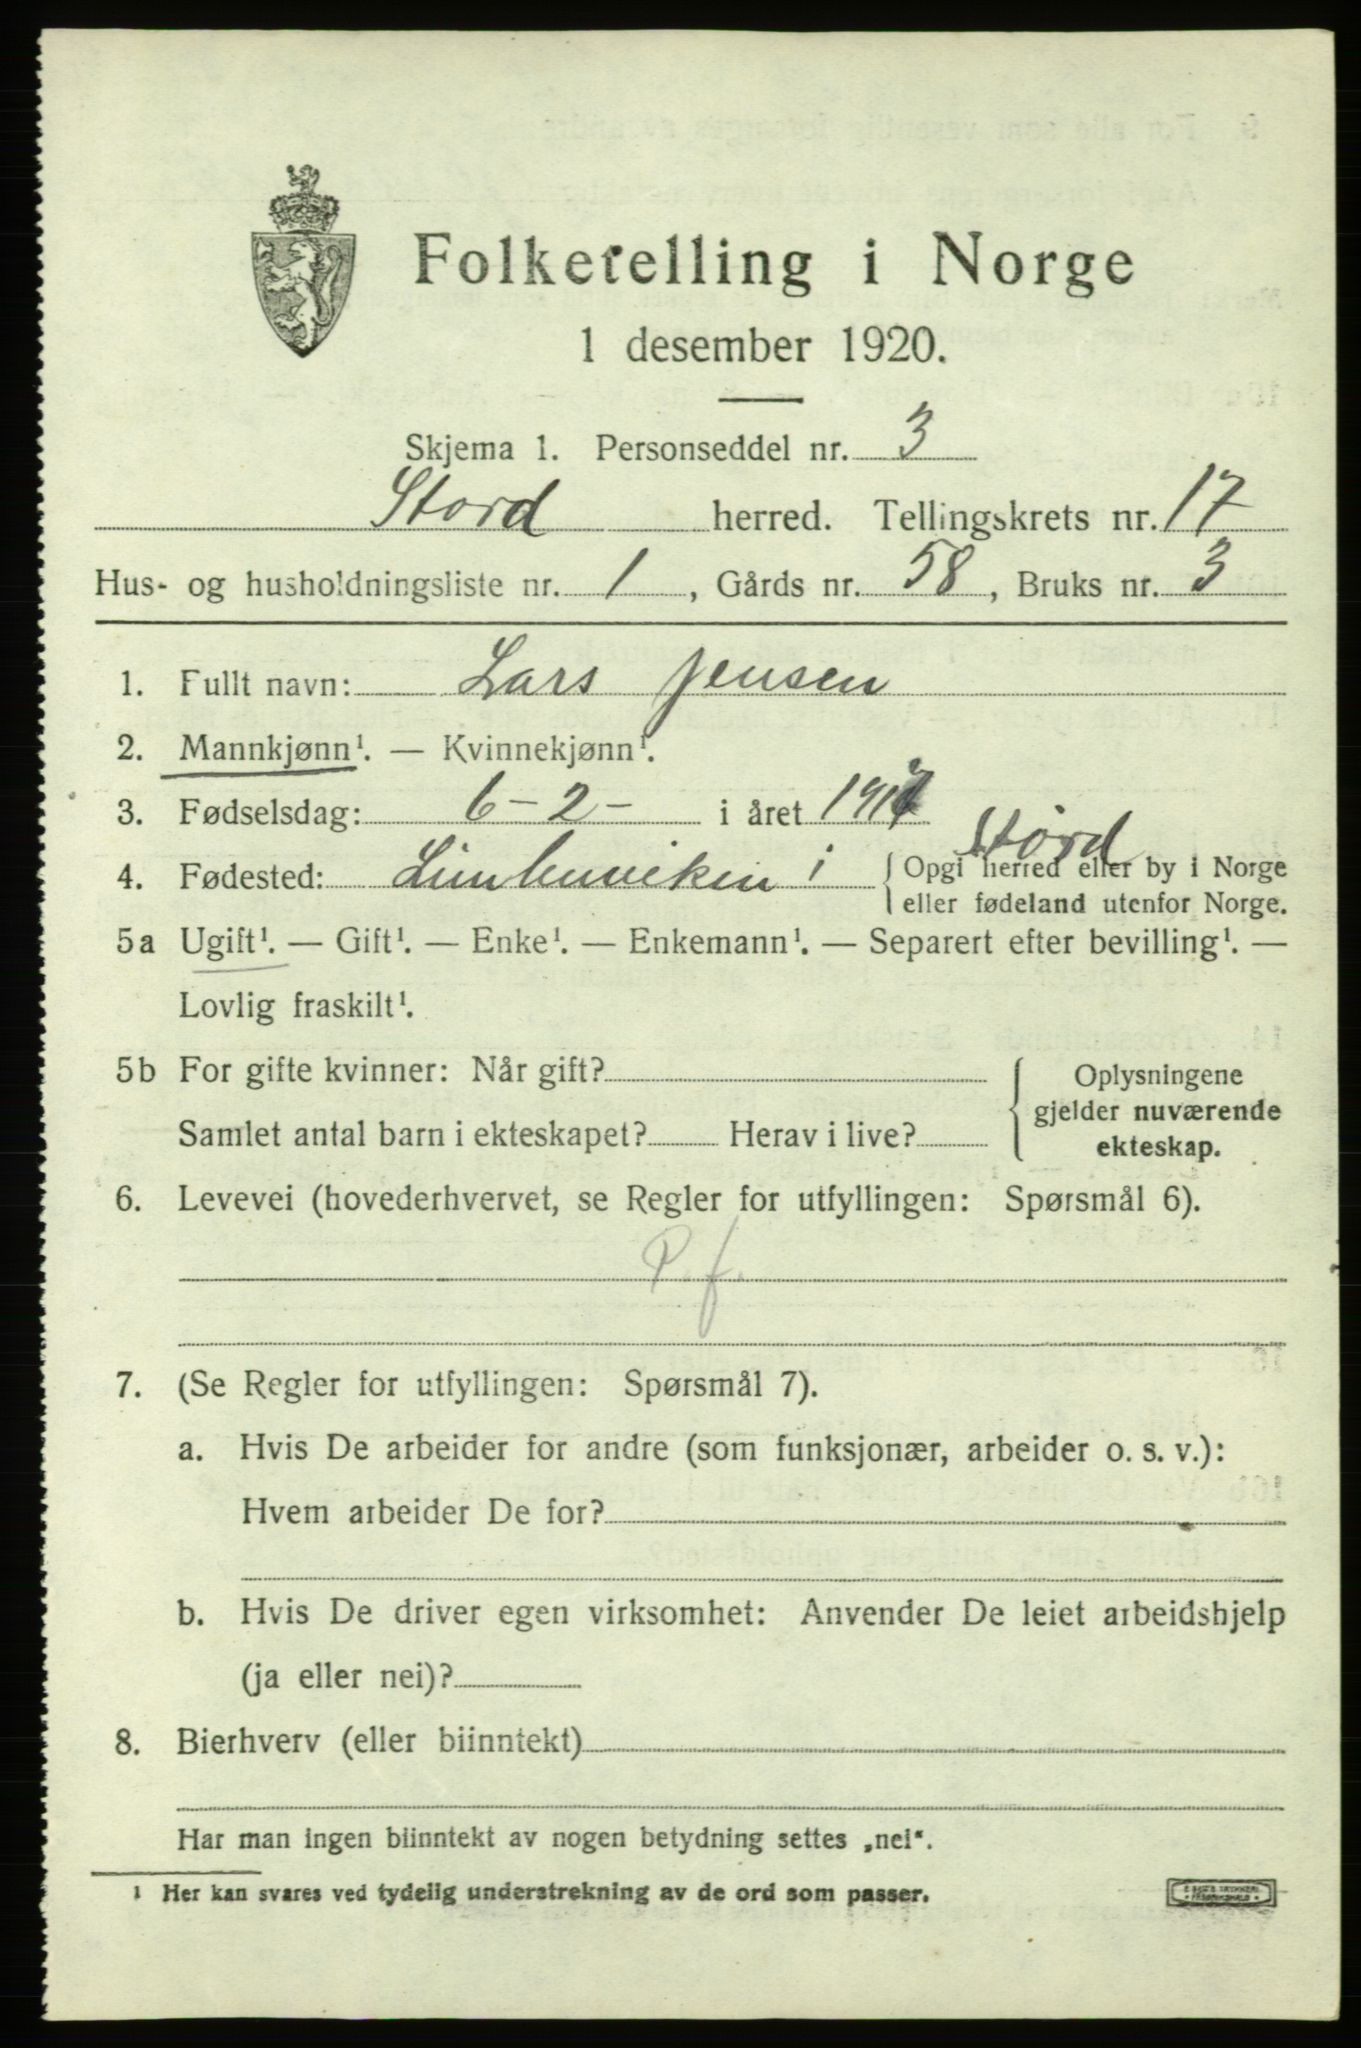 Folketelling i Norge
1 desember 1920.
Skjema 1. Personseddel nr. 3
Stord herred. Tellingskrets nr. 17
Hus- og husholdningsliste nr. 1, Gårds nr. 58, Bruks nr. 3
1. Fullt navn: Lars Jensen
2. Mannkjønn¹. — Kvinnekjønn¹.
3. Fødselsdag: 6-2- i året
4. Fødested: i Stord { Opgi herred eller by i Norge
eller fødeland utenfor Norge.
5a Ugift¹. — Gift¹. — Enke¹. — Enkemann¹. — Separert efter bevilling¹. —
Lovlig fraskilt¹.
5b For gifte kvinner: Når gift?
Samlet antal barn i ekteskapet? Herav i live?
Oplysningene
gjelder nuværende
ekteskap.
6. Levevei (hovederhvervet, se Regler for utfyllingen: Spørsmål 6).
P. f.
7. (Se Regler for utfyllingen: Spørsmål 7).
a. Hvis De arbeider for andre (som funksjonær, arbeider o. s. v.):
Hvem arbeider De for?
b. Hvis De driver egen virksomhet: Anvender De leiet arbeidshjelp
(ja eller nei)?
8. Bierhverv (eller biinntekt)
Har man ingen biinntekt av nogen betydning settes „nei“.
1 Her kan svares ved tydelig understrekning av de ord som passer.